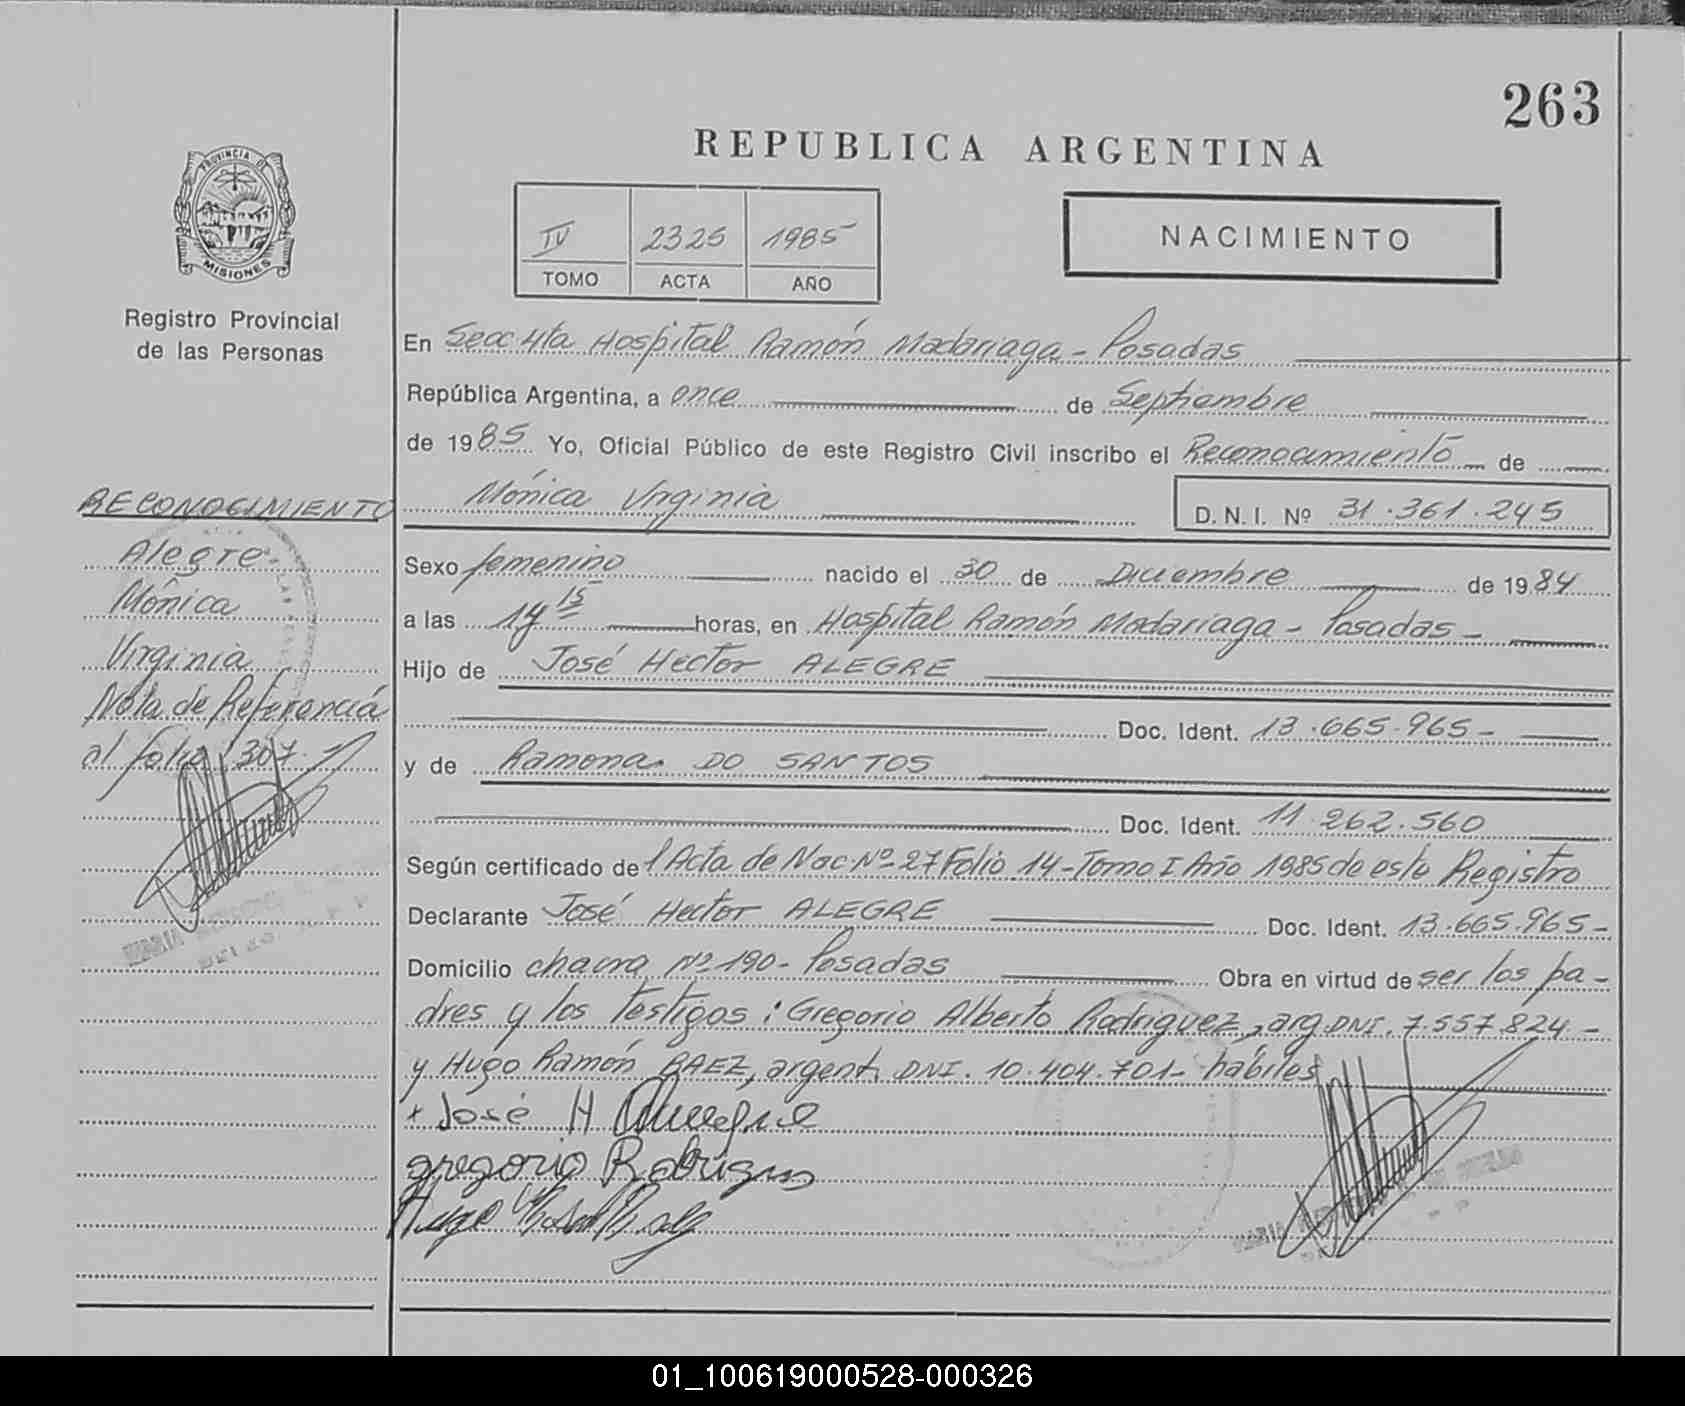 263
REPUBLICA ARGENTINA
PROVINCIA DE
MISIONES
Registro Provincial
de las Personas
IV 2325 1985
TOMO ACTA AÑO
NACIMIENTO
En Secc 4ta Hospital Ramón Madariaga - Posadas
República Argentina, a once de Septiembre
de 1985 Yo, Oficial Público de este Registro Civil inscribo el Reconocimiento de
Mónica Virginia D. N. I. Nº 31.361.245
Sexo femenino nacido el 30 de Diciembre de 1984
a las 14 15 horas, en Hospital Ramón Madariaga - Posadas -
Hijo de José Hector ALEGRE
Doc. Ident. 13.665.965-
y de Ramona DO SANTOS
Doc. Ident. 11.262.560
Según certificado de l Acta de Nac. Nº 27 Folio 14 - Tomo I Año 1985 de este Registro
Declarante José Hector ALEGRE Doc. Ident. 13.665.965-
Domicilio chacra Nº 190 - Posadas Obra en virtud de ser los pa-
dres y los testigos: Gregorio Alberto Rodriguez, arg. DNI. 7.557.824 -
y Hugo Ramón BAEZ, argent. DNI. 10.404.701- hábiles
x José H
gregorio
Hugo
MARIA
RECONOCIMIENTO
Alegre
Mónica
Virginia
Nota de Referencia
al folio 307.
MARIA
01_100619000528-000326